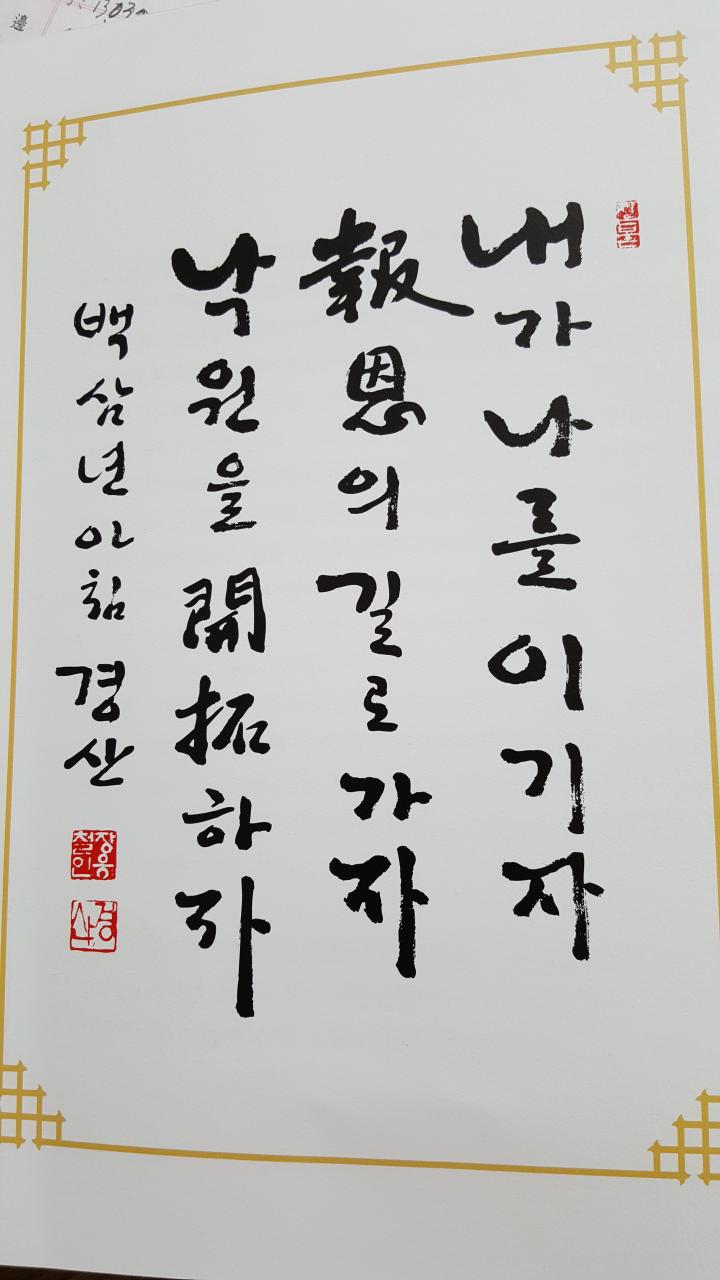 내가 나를 이기자
報恩의 길로 가자
낙원을 開拓하자
백삼년 아침 경산
장응철인
경산
邊